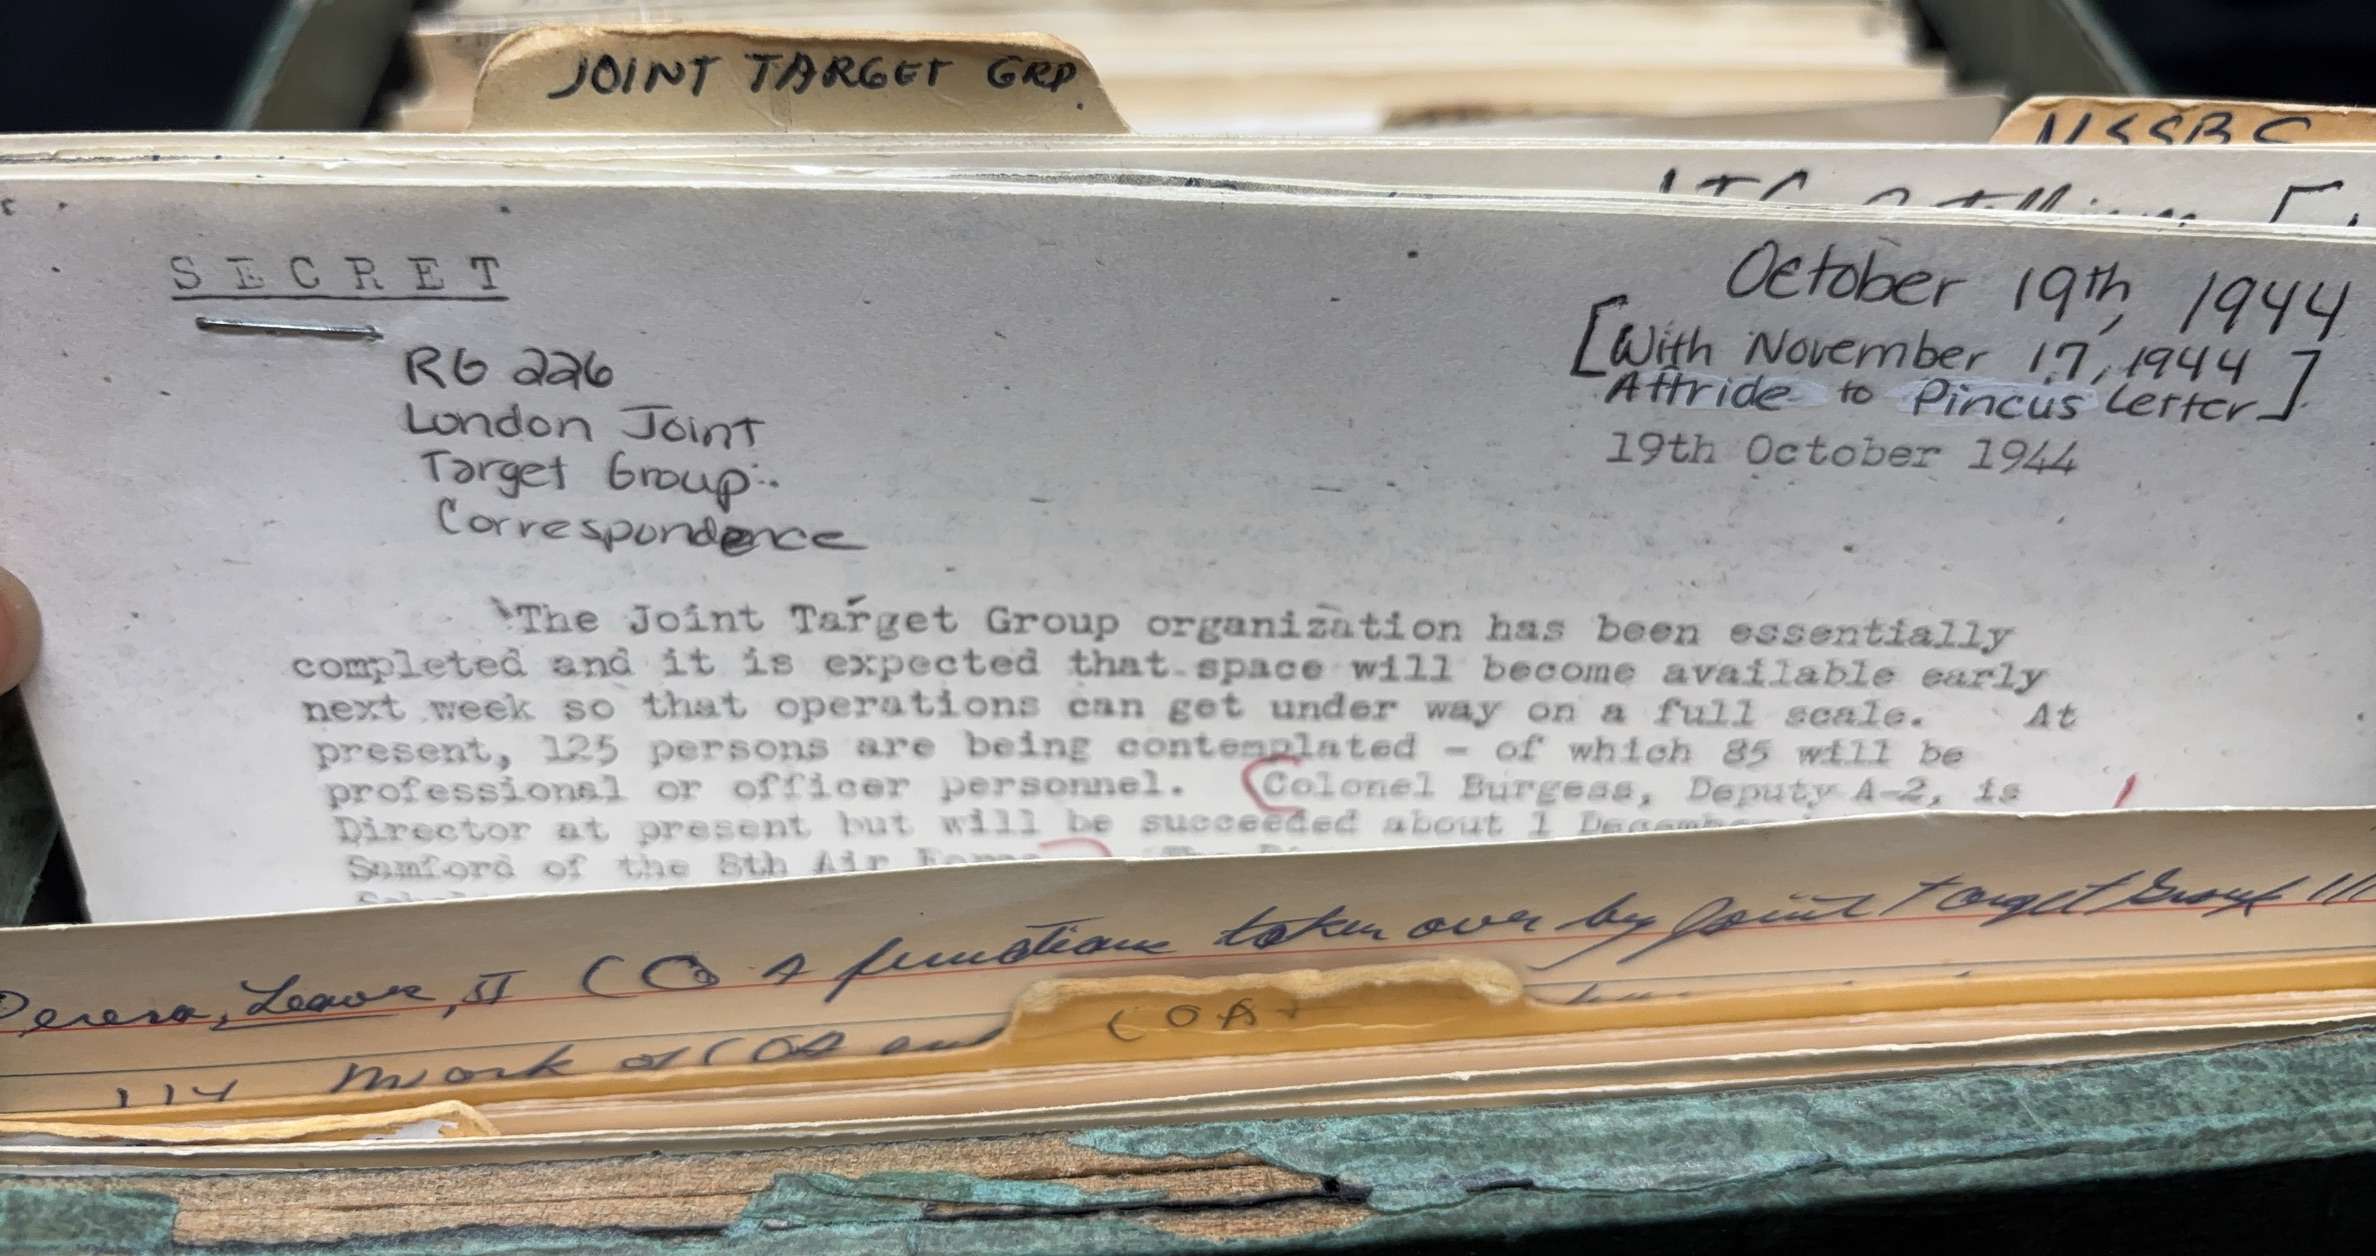 JOINT TARGET GRP.
USSBS
SECRET
October 19th, 1944
[With November 17, 1944
Attride to Pincus Letter]
19th October 1944
RG 226
London Joint
Target Group:
Correspondence
The Joint Target Group organization has been essentially
completed and it is expected that space will become available early
next week so that operations can get under way on a full scale. At
present, 125 persons are being contemplated - of which 85 will be
professional or officer personnel. Colonel Burgess, Deputy A-2, is
Director at present but will be succeeded about 1 December
Samford of the 8th Air Force
Perera, II COA functions taken over by Joint Target Group
114 Work of COA and
COA